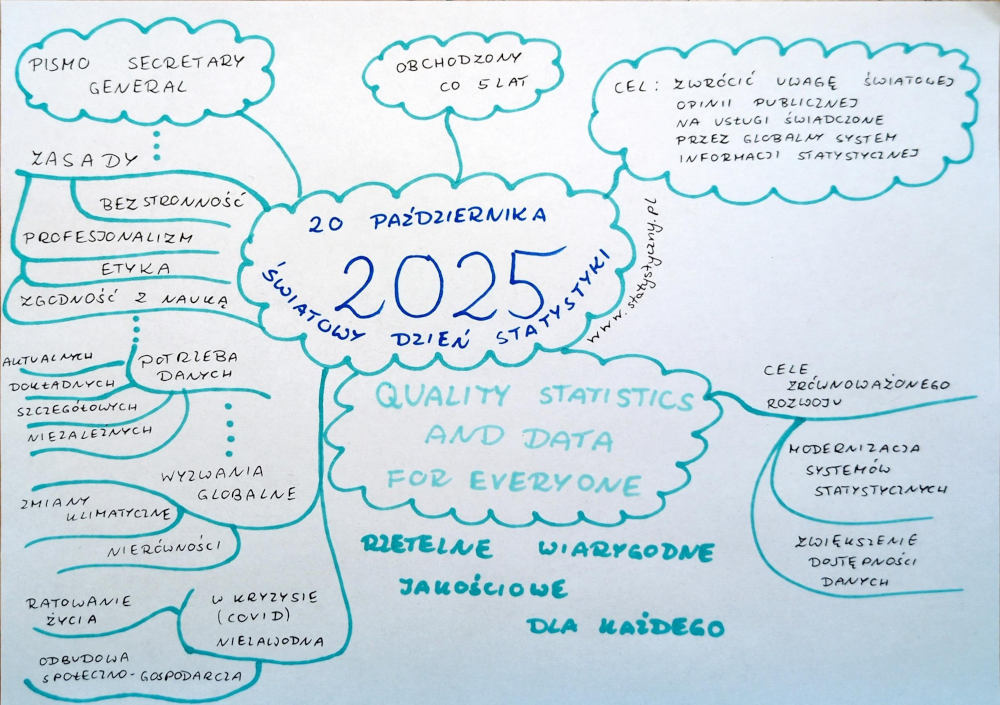 PISMO SECRETARY
GENERAL
OBCHODZONY
CO 5 LAT
CEL: ZWRÓCIĆ UWAGĘ ŚWIATOWEJ
OPINII PUBLICZNEJ
NA USŁUGI ŚWIADCZONE
PRZEZ GLOBALNY SYSTEM
INFORMACJI STATYSTYCZNEJ
ZASADY
BEZSTRONNOŚĆ
PROFESJONALIZM
ETYKA
ZGODNOŚĆ Z NAUKĄ
20 PAŹDZIERNIKA
2025
ŚWIATOWY DZIEŃ STATYSTYKI
www.statystyczny.pl
POTRZEBA
DANYCH
AKTUALNYCH
DOKŁADNYCH
SZCZEGÓŁOWYCH
NIEZALEŻNYCH
QUALITY STATISTICS
AND DATA
FOR EVERYONE
CELE
ZRÓWNOWAŻONEGO
ROZWOJU
MODERNIZACJA
SYSTEMÓW
STATYSTYCZNYCH
ZWIĘKSZENIE
DOSTĘPNOŚCI
DANYCH
WYZWANIA
GLOBALNE
ZMIANY
KLIMATYCZNE
NIERÓWNOŚCI
RZETELNE WIARYGODNE
JAKOŚCIOWE
DLA KAŻDEGO
W KRYZYSIE
(COVID)
NIEZAWODNA
RATOWANIE
ŻYCIA
ODBUDOWA
SPOŁECZNO-GOSPODARCZA